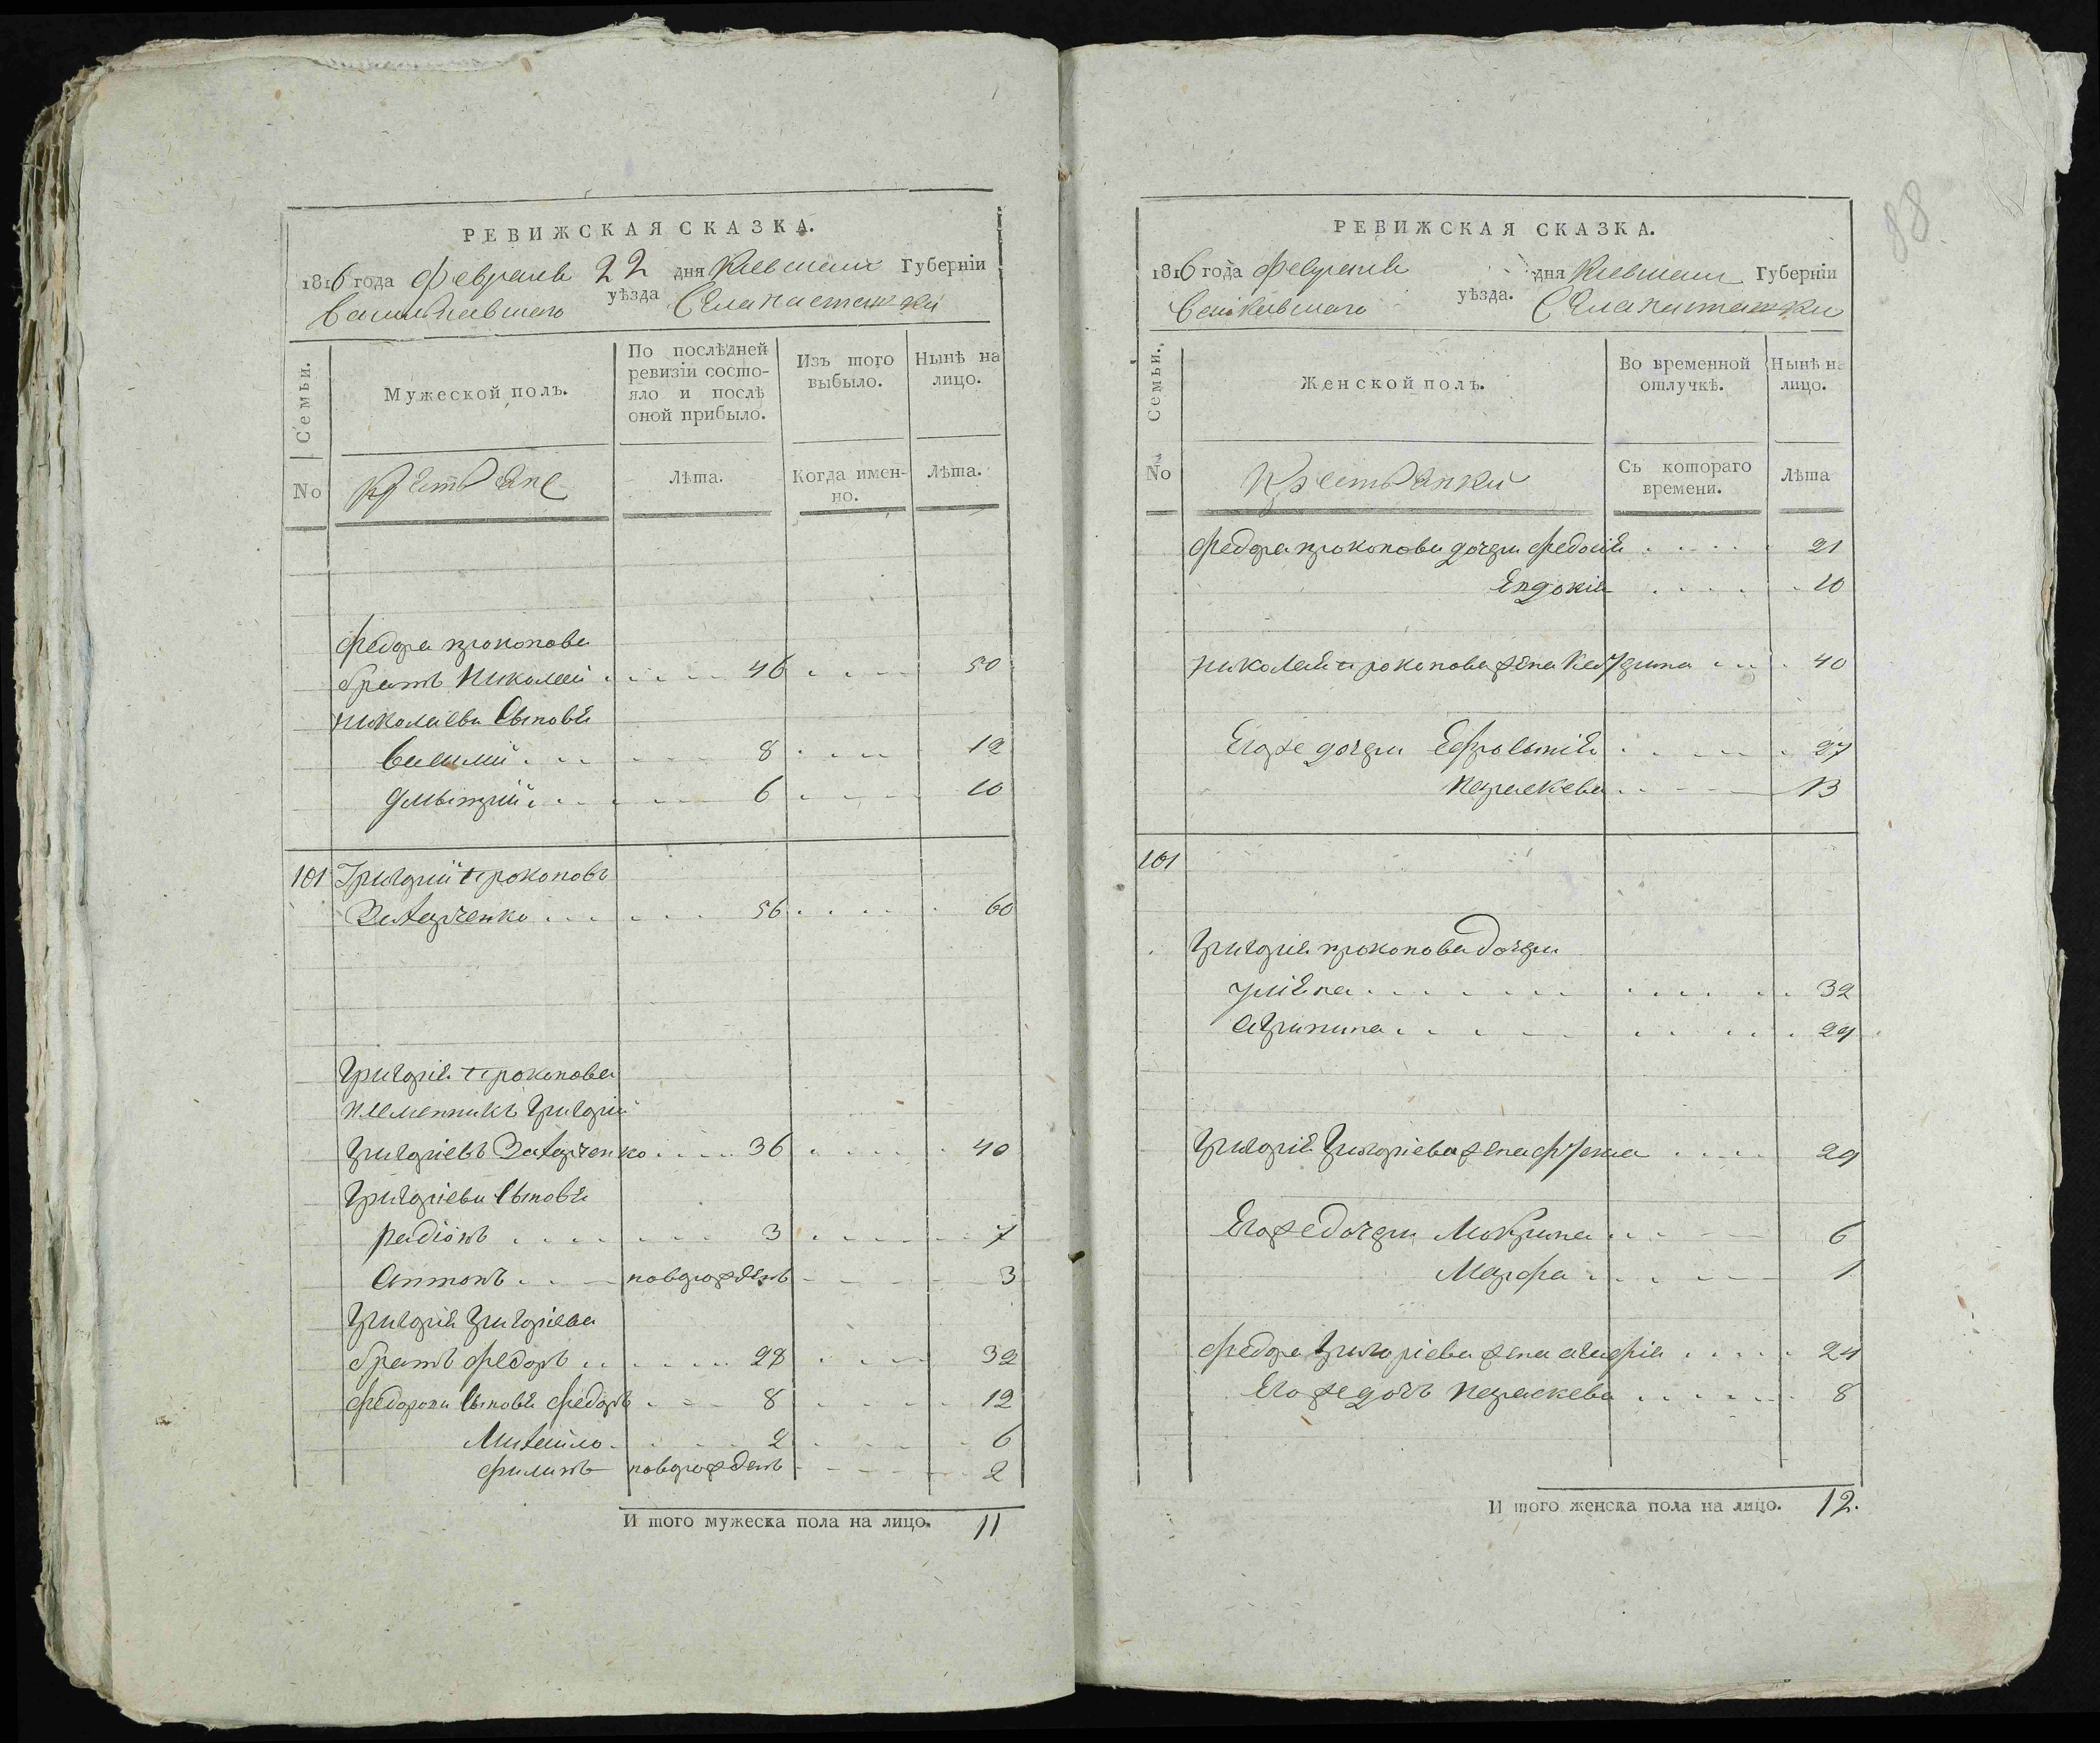 РЕВИЖСКАЯ СКАЗКА.
1816 года февраля 22 дня Киевской Губерніи
Васильковскаго уѣзда Села
Семьи.
Мужеской полъ.
По послѣдней ревизіи состояло и послѣ оной прибыло.
Изъ того выбыло.
Нынѣ на лицо.
No
Крестьяне
Лѣта.
Когда именно.
Лѣта.
Федора прокопова
братъ Николай 46 50
николаевы сыновя
Василій 8 12
дмытрий 6 10
101 Григорий прокоповъ
Захарченко 56 60
Григорія прокопова
племенникъ Григорий
Григориевъ Захарченко 36 40
Григоріевы сыновя
Радіонъ 3 7
Антонъ новорожденъ 3
Григорія Григоріева
братъ Федоръ 28 32
Федоровы сыновя Федоръ 8 12
Михайло 2 6
Филипъ новорожденъ 2
И того мужеска пола на лицо. 11
88.
РЕВИЖСКАЯ СКАЗКА.
1816 года февраля дня Киевской Губерніи
Васильковскаго уѣзда. Села
Семьи.
Женской полъ.
Во временной отлучкѣ.
Нынѣ на лицо.
No
Крестьянки
Съ котораго времени.
Лѣта
Федора прокопова дочери Федосія 21
Евдокія 10
николая прокопова жена 40
Егоже дочери Ефросынія 27
параскева 13
101
Григорія прокопова дочери
уліяна 32
агрипина 29
Григорія Григоріева жена 29
Егоже дочери Мокрина 6
Марфа 1
Федора Григоріева жена агафія 24
Егоже дочь параскева 8
И того женска пола на лицо. 12.